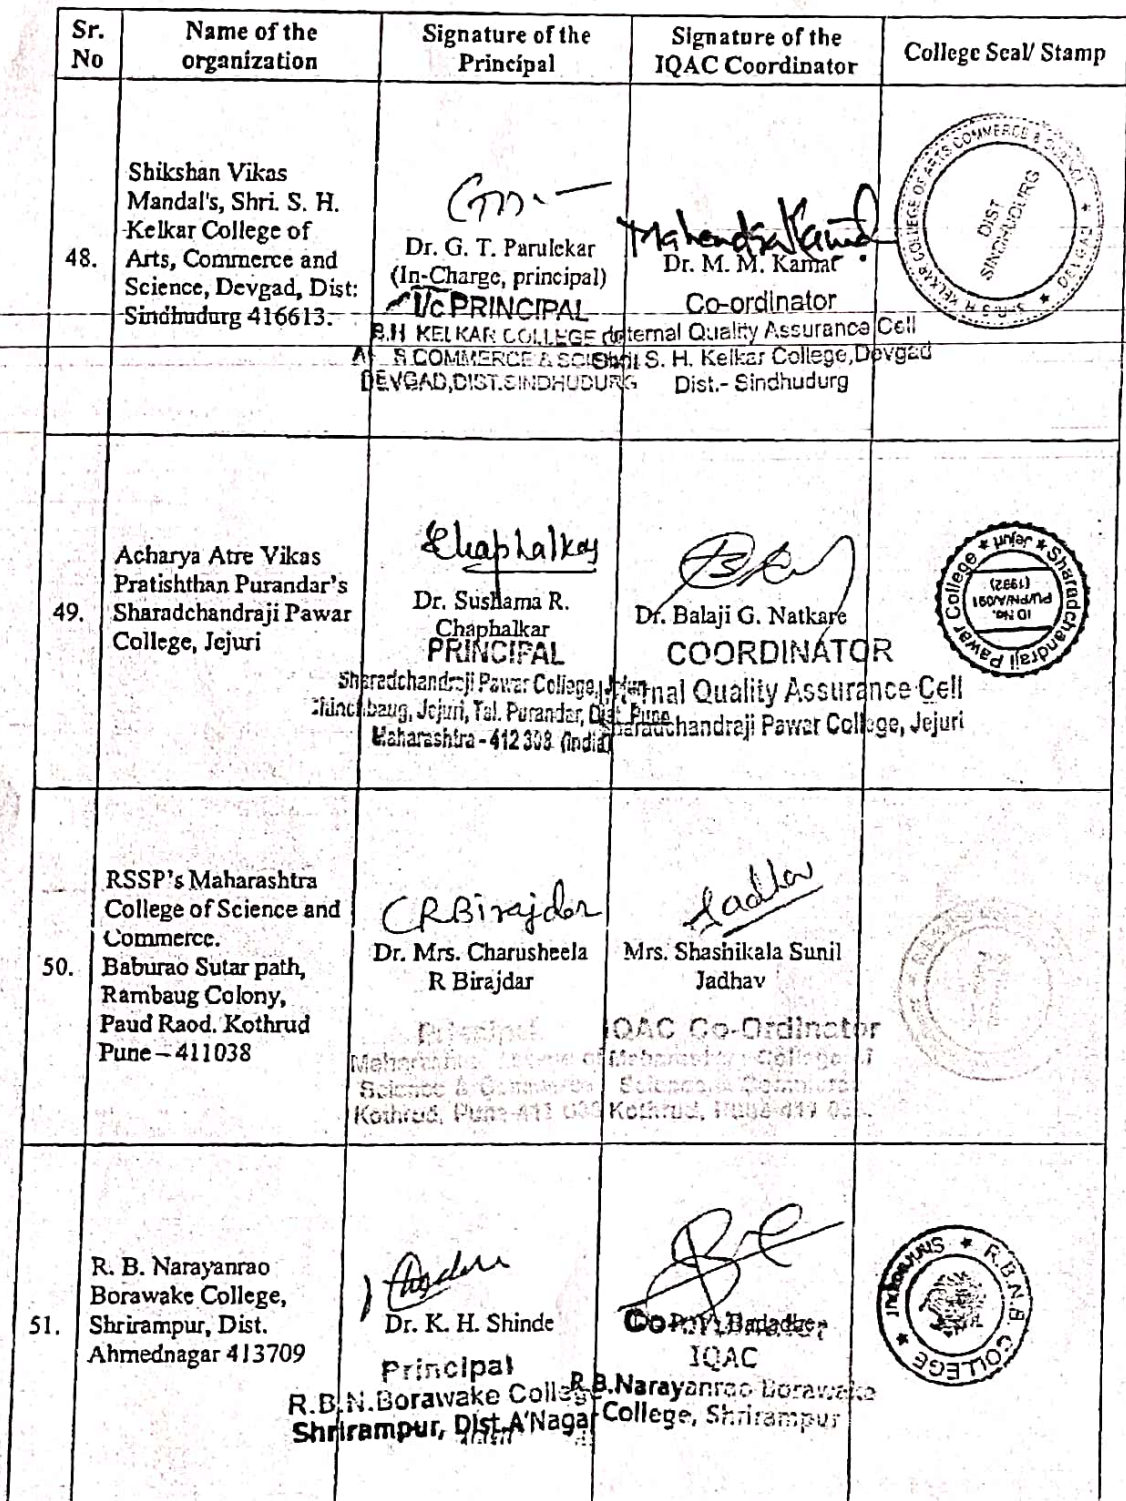 Sr. No
Name of the organization
Signature of the Principal
Signature of the IQAC Coordinator
College Seal/ Stamp
48.
Shikshan Vikas
Mandal's, Shri. S. H.
Kelkar College of
Arts, Commerce and
Science, Devgad, Dist:
Sindhudurg 416613.
Dr. G. T. Parulekar
(In-Charge, principal)
I/c PRINCIPAL
KELKAR COLLEGE
COMMERCE &
DEVGAD, DIST. SINDHUDURG
Mahendra Kamat
Dr. M. M. Kamat
Co-ordinator
Internal Quality Assurance Cell
S. H. Kelkar College, Devgad
Dist.- Sindhudurg
KELKAR COLLEGE OF ARTS COMMERCE & SCIENCE ★ DEVGAD ★
DIST
SINDHUDURG
49.
Acharya Atre Vikas
Pratishthan Purandar's
Sharadchandraji Pawar
College, Jejuri
Chaphalkar
Dr. Sushama R.
Chaphalkar
PRINCIPAL
Sharadchandraji Pawar College, Jejuri
Jejuri, Tal. Purandar, Dist. Pune
Maharashtra - 412 303 (India)
Dr. Balaji G. Natkare
COORDINATOR
Internal Quality Assurance Cell
Sharadchandraji Pawar College, Jejuri
★ Sharadchandraji Pawar College ★ Jejuri
ID No.
(1992)
50.
RSSP's Maharashtra
College of Science and
Commerce.
Baburao Sutar path,
Rambaug Colony,
Paud Raod. Kothrud
Pune – 411038
CRBirajdar
Dr. Mrs. Charusheela
R Birajdar
Principal
Science &
Kothrud, Pune-411
Jadhav
Mrs. Shashikala Sunil
Jadhav
IQAC Co-Ordinator
Kothrud,
51.
R. B. Narayanrao
Borawake College,
Shrirampur, Dist.
Ahmednagar 413709
Dr. K. H. Shinde
Principal
R.B.N.Borawake College
Shrirampur, Dist.A'Nagar
IQAC
R.B.Narayanrao Borawake
College, Shrirampur
★ R.B.N.B. COLLEGE ★ SHRIRAMPUR